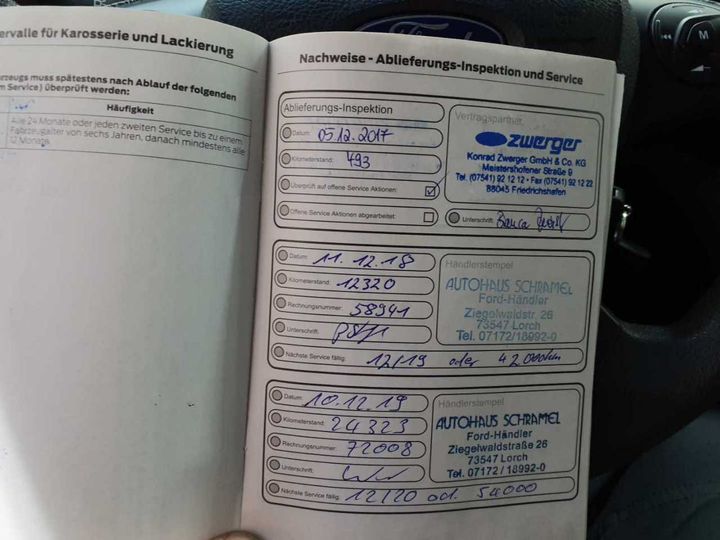 ervalle für Karosserie und Lackierung
rzeugs muss spätestens nach Ablauf der folgenden
Service) überprüft werden:
Häufigkeit
Alle 24 Monate oder jeden zweiten Service bis zu einem
Fahrzeugalter von sechs Jahren, danach mindestens alle
12 Monate.
Ford
M
Nachweise - Ablieferungs-Inspektion und Service
Ablieferungs-Inspektion
Datum: 05.12.2017
Kilometerstand: 493
Überprüft auf offene Service Aktionen:
Offene Service Aktionen abgearbeitet:
Vertragspartner
zwerger
Konrad Zwerger GmbH & Co. KG
Meistershofener Straße 9
Tel. (07541) 92 12 12 · Fax (07541) 92 12 22
88045 Friedrichshafen
Unterschrift:
Datum: 11.12.18
Kilometerstand: 12320
Rechnungsnummer: 58941
Unterschrift:
Nächste Service fällig: 12/19 oder 42000km
Händlerstempel
AUTOHAUS SCHRAMEL
Ford-Händler
Ziegelwaldstr. 26
73547 Lorch
Tel. 07172/18992-0
Datum: 10.12.19
Kilometerstand: 24323
Rechnungsnummer: 72008
Unterschrift:
Nächste Service fällig: 12/20 od. 54000
Händlerstempel
AUTOHAUS SCHRAMEL
Ford-Händler
Ziegelwaldstraße 26
73547 Lorch
Tel. 07172/18992-0